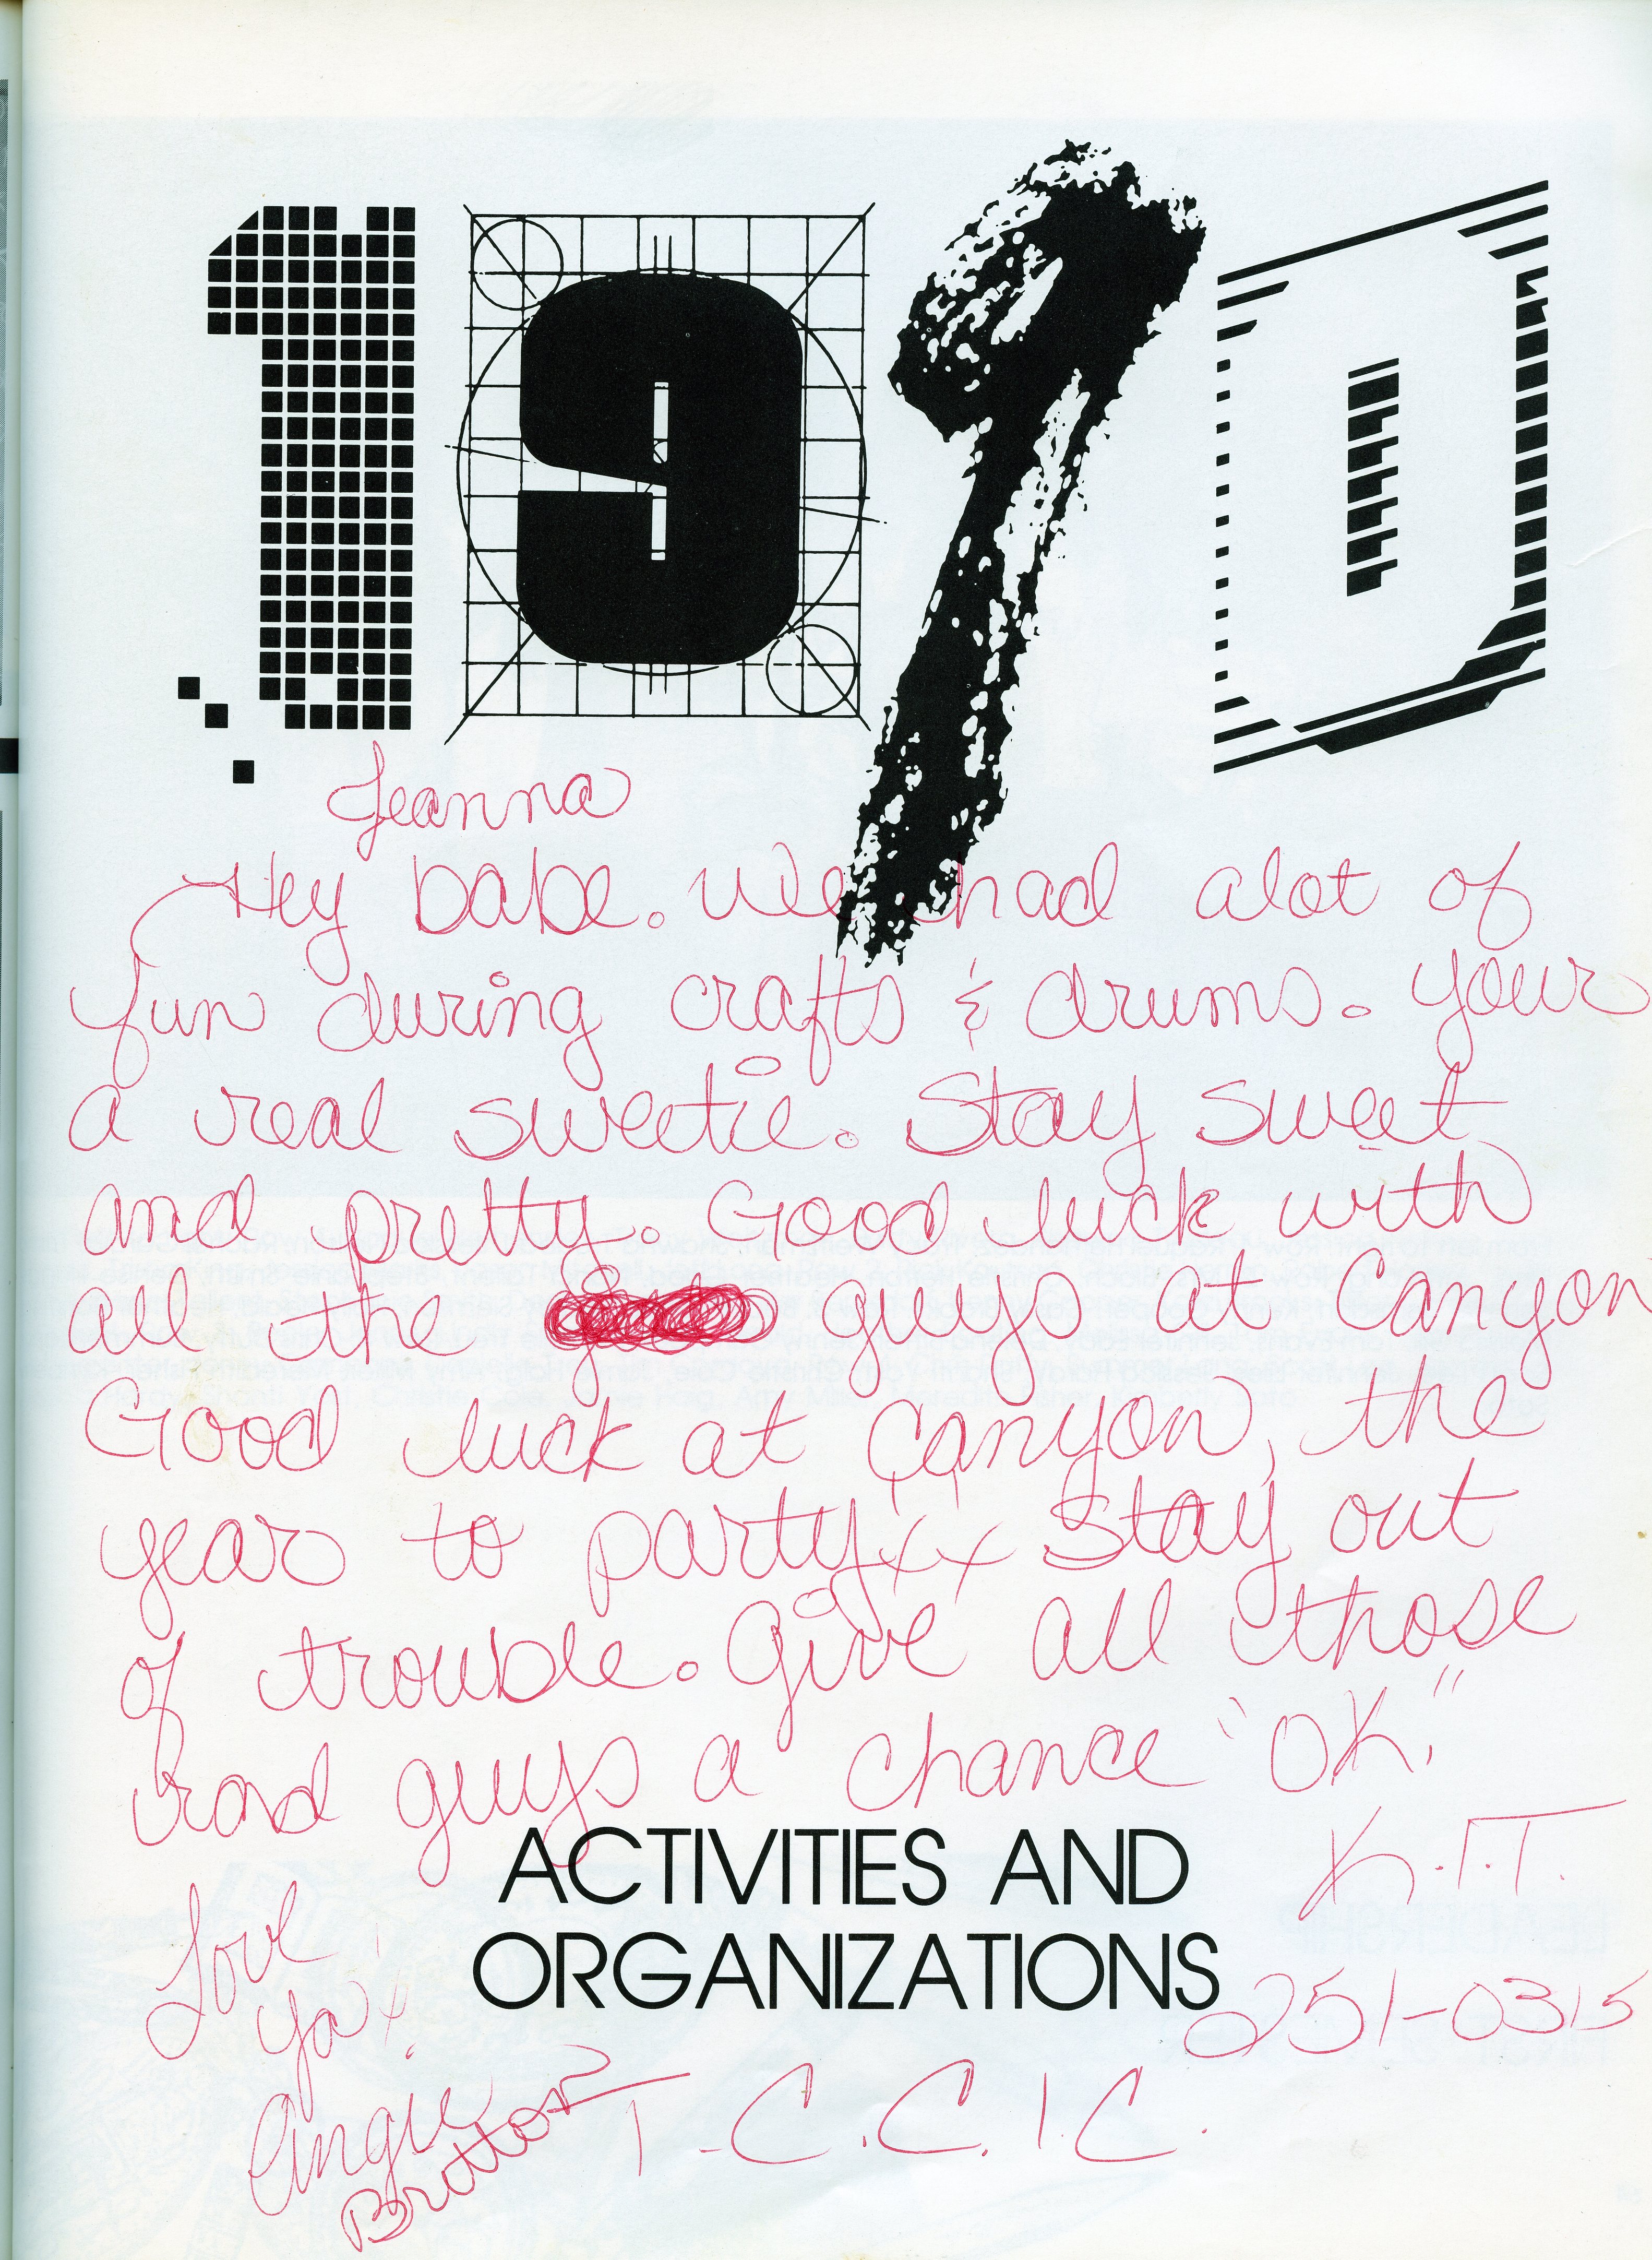 1970
Jeanna
Hey babe. We had alot of
fun during crafts & drums. Your
a real sweetie. Stay sweet
and pretty. Good luck with
all the guys at Canyon
Good luck at Canyon, the
year to party!! Stay out
of trouble. Give all those
rad guys a chance "OK."
ACTIVITIES AND
ORGANIZATIONS
K.I.T.
251-0315
Love
ya!
Angie
T.C.C.I.C.